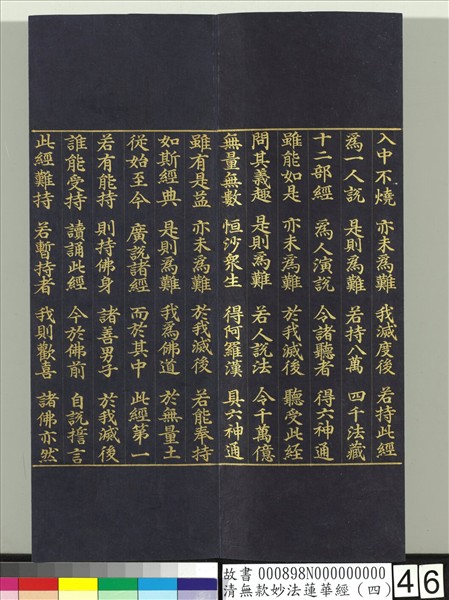 入中不燒　亦未為難　我滅度後　若持此經
為一人說　是則為難　若持八萬　四千法藏
十二部經　為人演說　令諸聽者　得六神通
雖能如是　亦未為難　於我滅後　聽受此經
問其義趣　是則為難　若人說法　令千萬億
無量無數　恒沙衆生　得阿羅漢　具六神通
雖有是益　亦未為難　於我滅後　若能奉持
如斯經典　是則為難　我為佛道　於無量土
從始至今　廣說諸經　而於其中　此經第一
若有能持　則持佛身　諸善男子　於我滅後
誰能受持　讀誦此經　今於佛前　自說誓言
此經難持　若暫持者　我則歡喜　諸佛亦然
故書 000898N000000000
清無款妙法蓮華經（四）
46